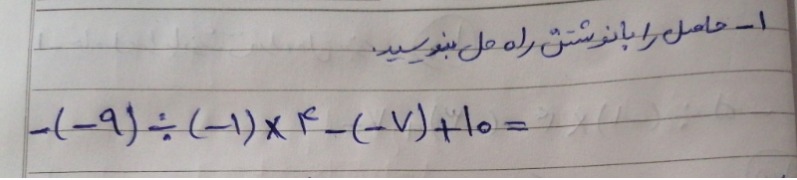 ۱- حاصل را با نوشتن راه حل بنویسید.
-(-۹) ÷ (-۱) × ۴ - (-۷) + ۱۰ =